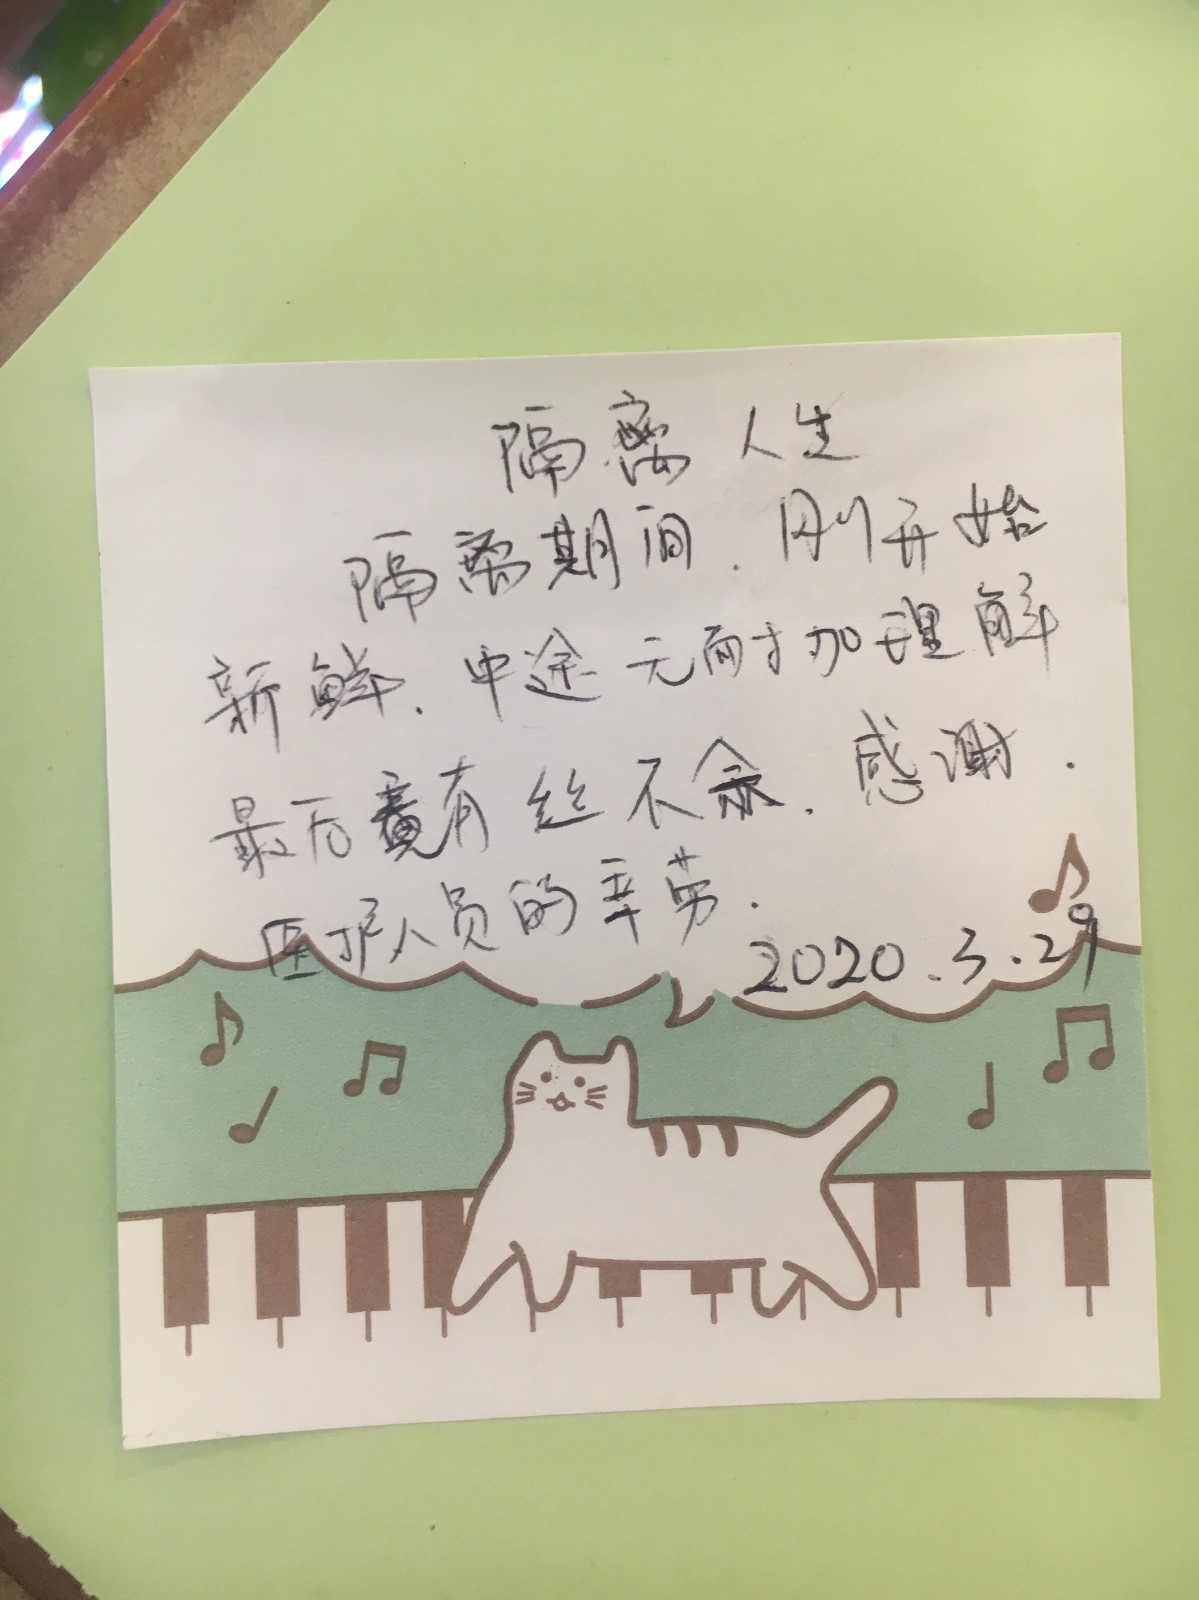 隔离人生
隔离期间.刚开始
新鲜.中途无耐加理解
最后竟有丝不舍.感谢.
医护人员的辛劳.
2020.3.29